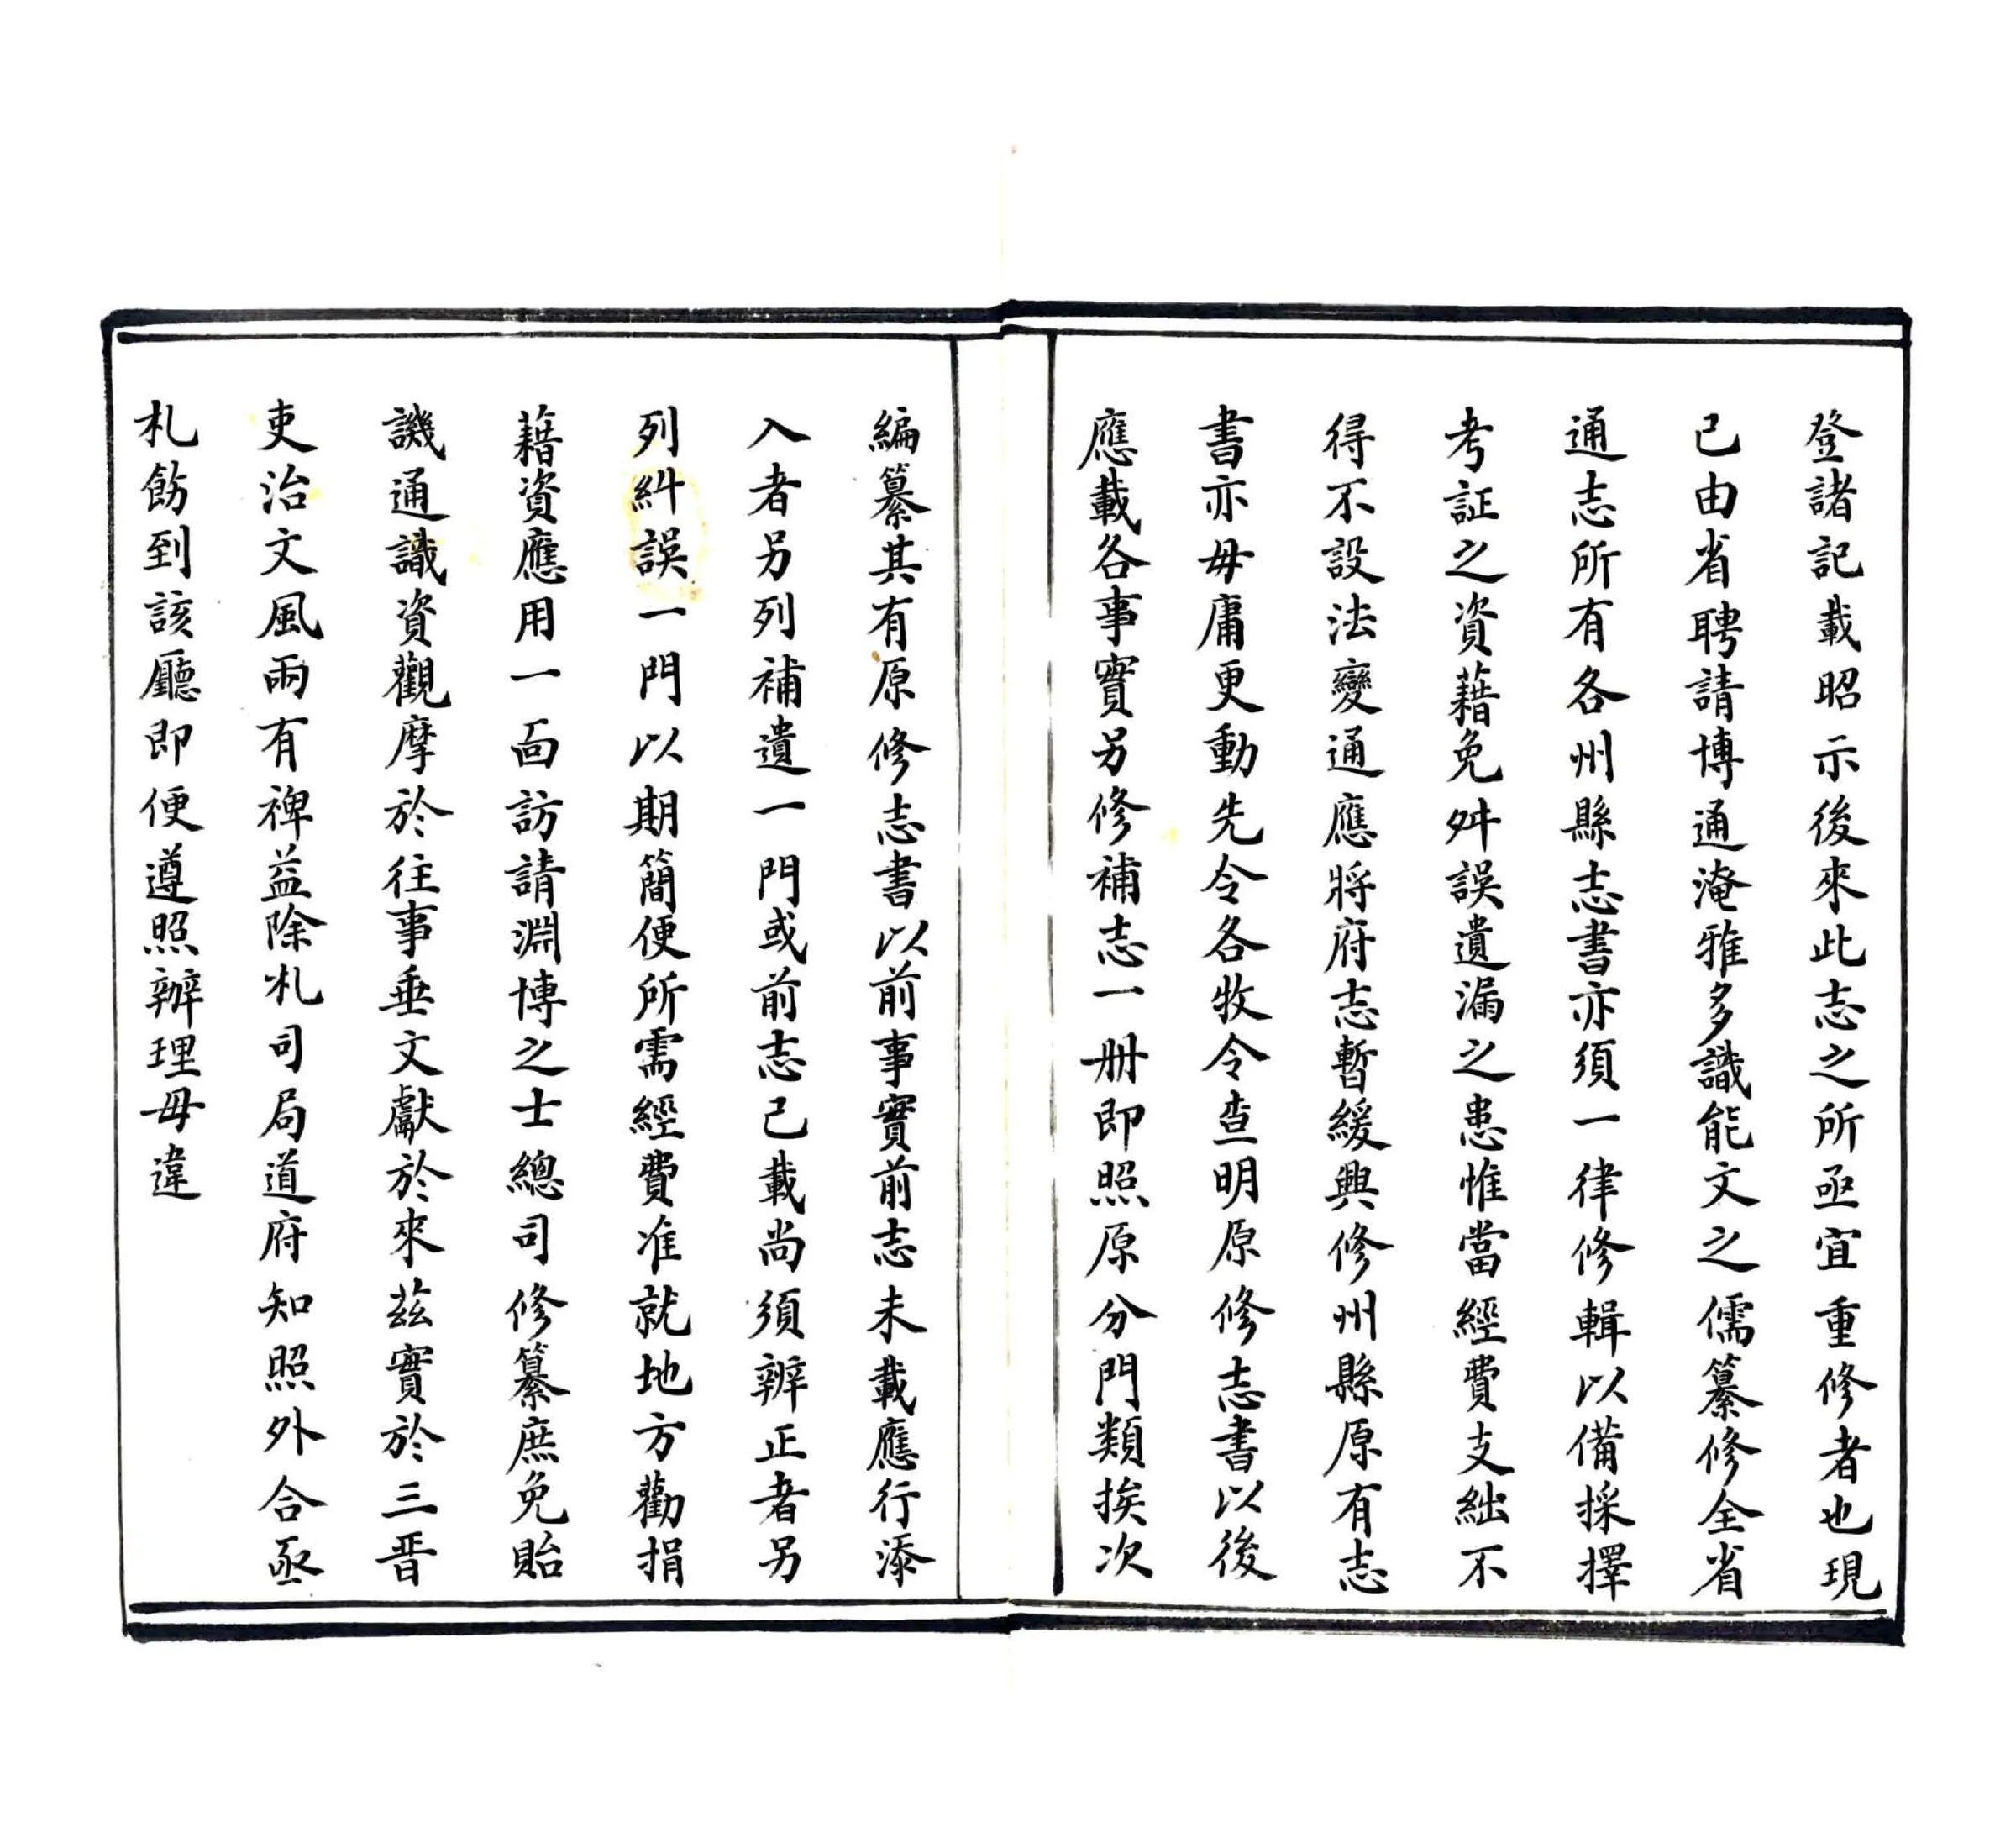 登諸記載昭示後來此志之所亟宜重修者也現
已由省聘請博通淹雅多識能文之儒纂修全省
通志所有各州縣志書亦須一律修輯以備採擇
考証之資藉免舛誤遺漏之患惟當經費支絀不
得不設法變通應將府志暫緩興修州縣原有志
書亦毋庸更動先令各牧令查明原修志書以後
應載各事實另修補志一册即照原分門類挨次
編纂其有原修志書以前事實前志未載應行添
入者另列補遺一門或前志已載尚須辨正者另
列糾誤一門以期簡便所需經費准就地方勸捐
藉資應用一面訪請淵博之士總司修纂庶免貽
譏通識資觀摩於往事垂文獻於來茲實於三晋
吏治文風兩有裨益除札司局道府知照外合亟
札飭到該廳即便遵照辦理毋違